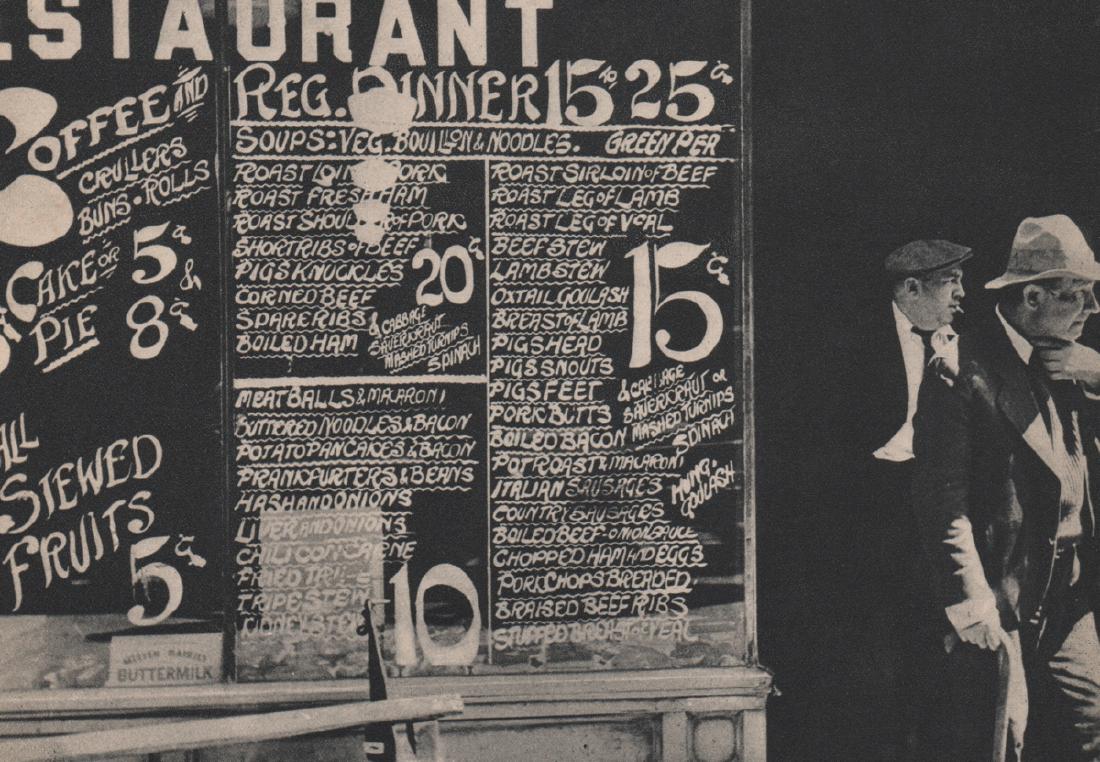 RESTAURANT
COFFEE AND
CRULLERS
BUNS • ROLLS
5¢
CAKE OR
PIE
&
8¢
ALL
STEWED
FRUITS
5¢
BUTTERMILK
REG. DINNER 15 TO 25¢
SOUPS: VEG. BOUILLON & NOODLES. GREEN PEA
ROAST LOIN PORK
ROAST FRESH HAM
ROAST SHOULDER OF PORK
SHORT RIBS OF BEEF
PIG'S KNUCKLES
CORNED BEEF
SPARERIBS
BOILED HAM
20¢
& CABBAGE
SAUERKRAUT
MASHED TURNIPS
SPINACH
MEATBALLS & MACARONI
BUTTERED NOODLES & BACON
POTATO PANCAKES & BACON
FRANKFURTERS & BEANS
HASH AND ONIONS
LIVER AND ONIONS
CHILI CON CARNE
FRIED TRIPE
TRIPE STEW
KIDNEY STEW
10
ROAST SIRLOIN OF BEEF
ROAST LEG OF LAMB
ROAST LEG OF VEAL
BEEF STEW
LAMB STEW
OXTAIL GOULASH
BREAST OF LAMB
PIGS HEAD
PIGS SNOUTS
PIGS FEET
PORK BUTTS
BOILED BACON
15¢
& CABBAGE
SAUERKRAUT OR
MASHED TURNIPS
SPINACH
POT ROAST & MACARONI
ITALIAN SAUSAGES
HUNG.
GOULASH
COUNTRY SAUSAGES
BOILED BEEF-ONION SAUCE
CHOPPED HAM AND EGGS
PORK CHOPS BREADED.
BRAISED BEEF RIBS
STUFFED BREAST OF VEAL